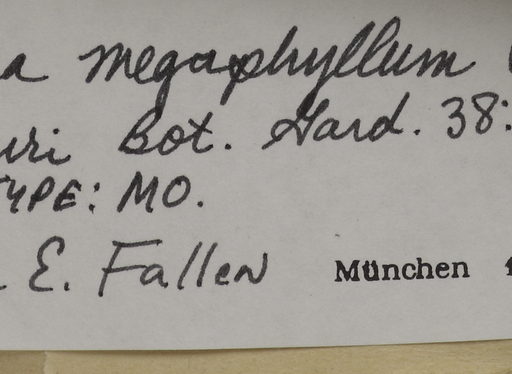 a megaphyllum (
uri Bot. Gard. 38:
TYPE: MO.
. E. Fallen München